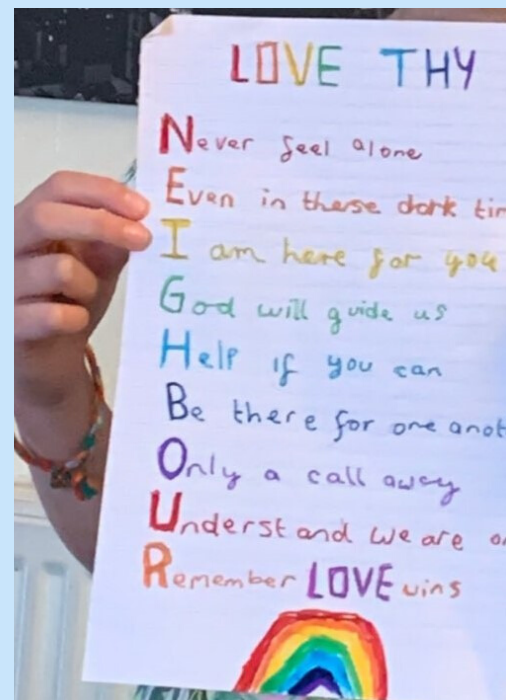 LOVE THY
Never feel alone
Even in these dark tim
I am here for you
God will guide us
Help if you can
Be there for one anot
Only a call away
Understand we are o
Remember LOVE wins